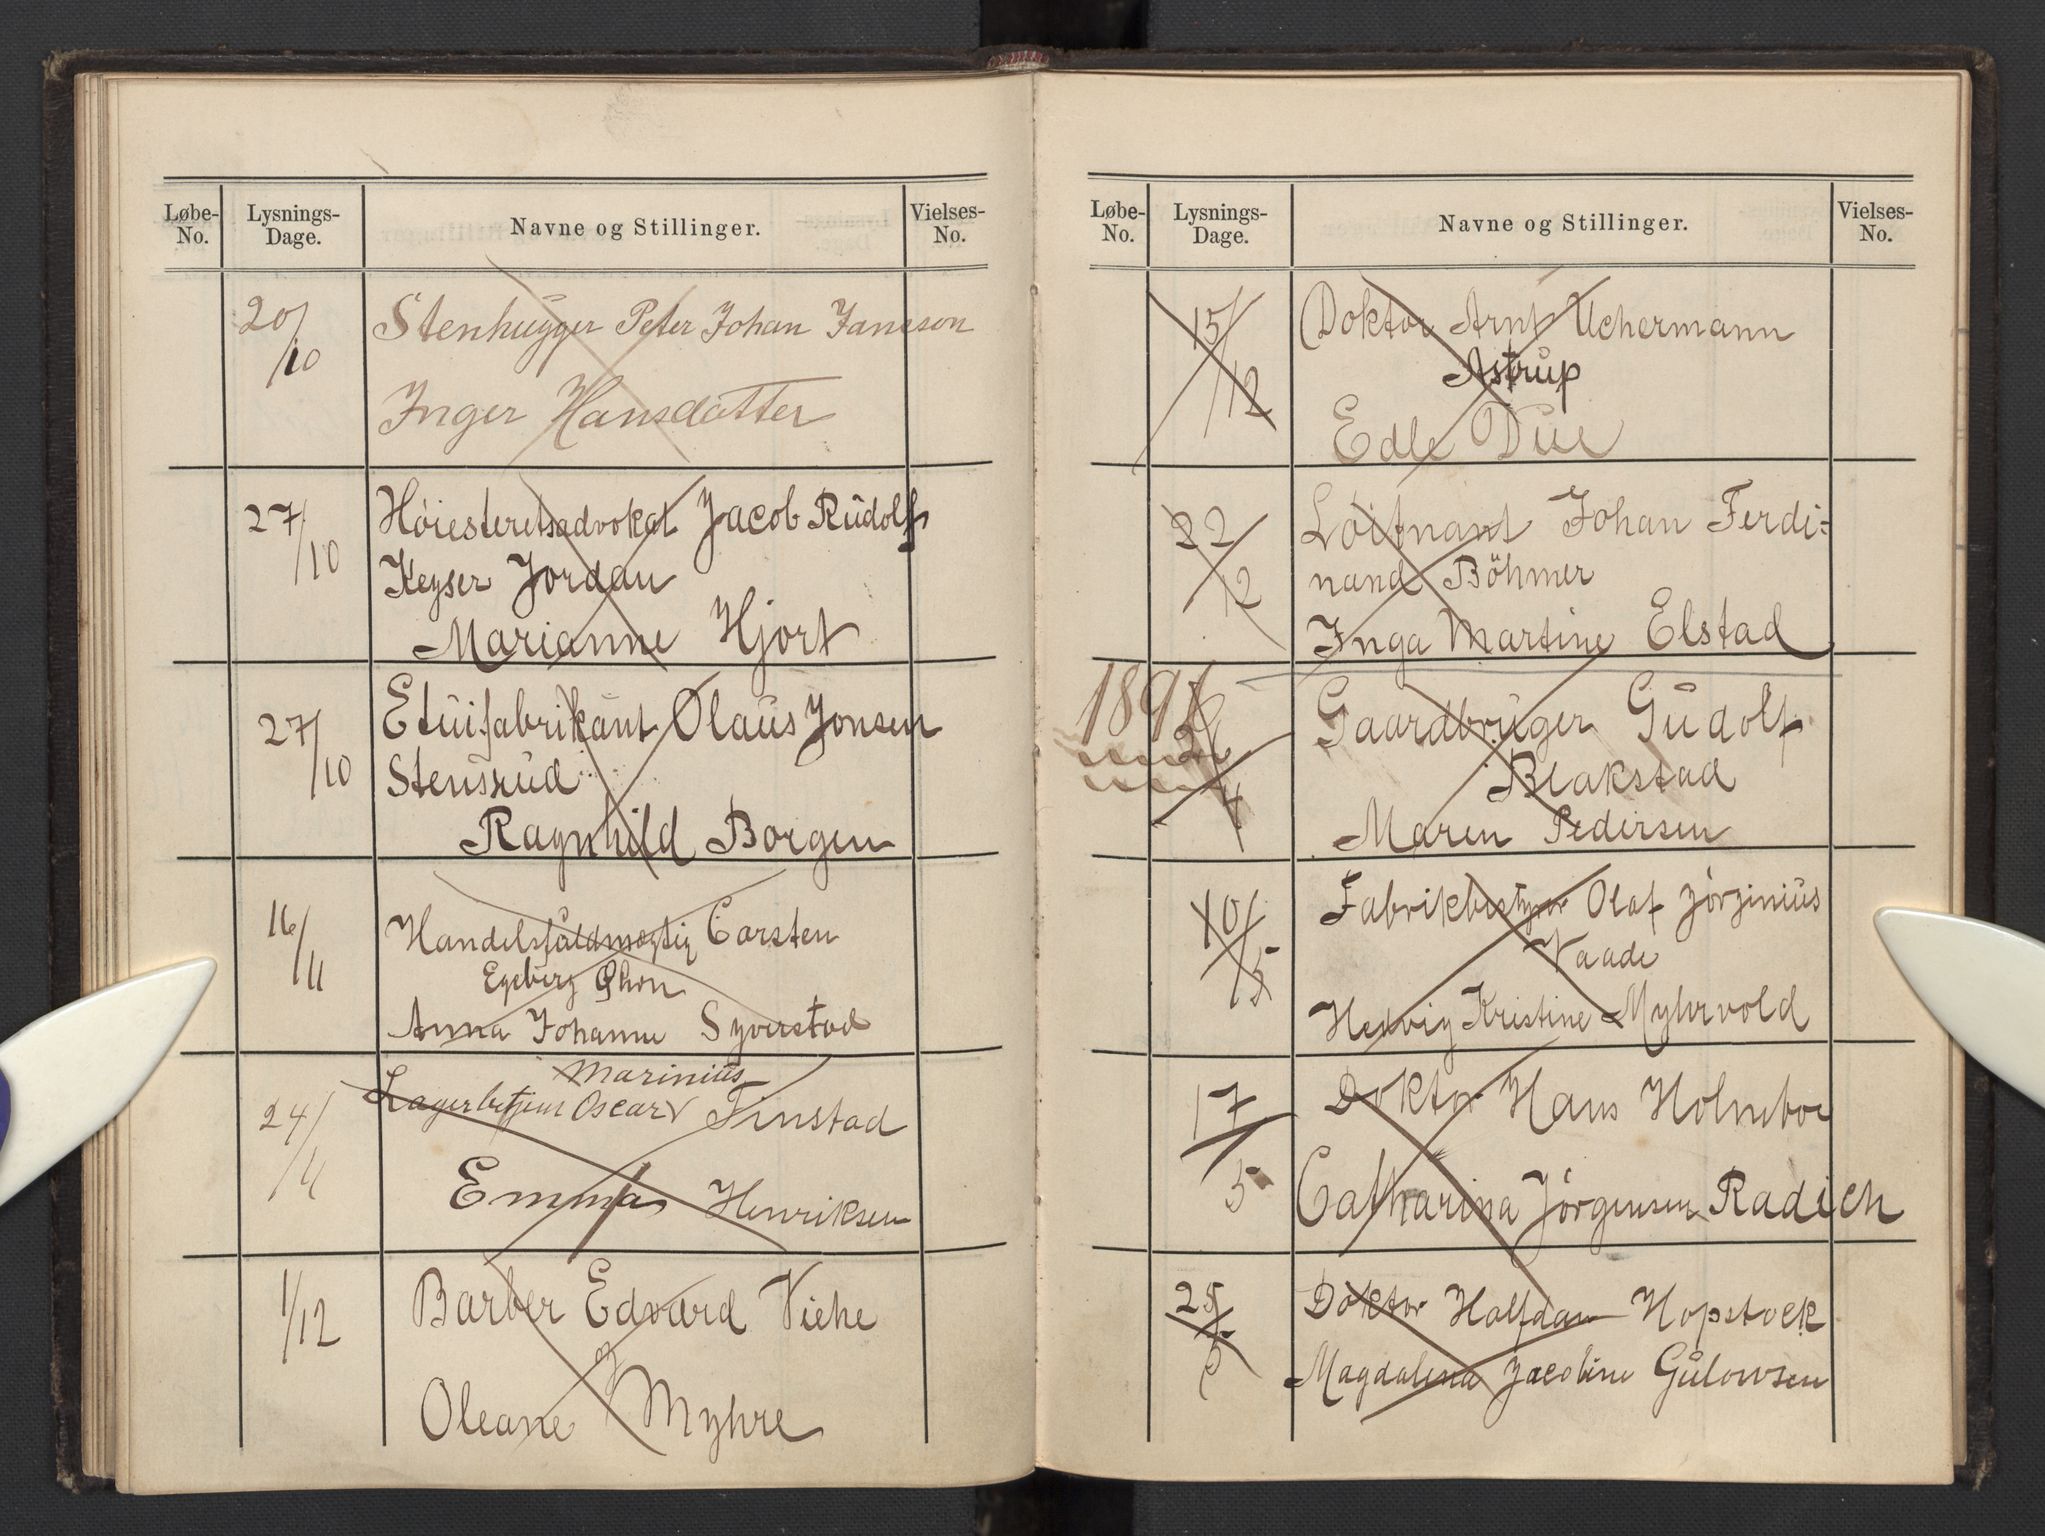 Løbe-No. Lysnings-Dage. Navne og Stillinger. Vielses-No.
20/10 Stenhügger Peter Johan Jansson
Inger Hansdatter
27/10 Høiesteretsadvokat Jacob Rüdolf
Keyser Jordan
Marianne Hjort
27/10 Etuifabrikant Olaüs Jonsen
Stensrüd
Ragnhild Borgen
16/11 Handelsfüldmægtig Carsten
Egeberg
Anna Johanne Syverstad
24/11 Marinius
Lagerbetjent Oscar Finstad
Emma Henriksen
1/12 Barber Edvard Viehe
Oleane Myhre
Løbe-No. Lysnings-Dage. Navne og Stillinger. Vielses-No.
15/12 Doktor Arnt Uchermann
Astrup
Edle Due
22/12 Løitnant Johan Ferdi-
nand Böhmer
Inga Martine Elstad
1891
Gaardbrüger Güdolf
Blakstad
Maren Pedersen
10/5 Fabrikbestyrer Olaf Jörginiüs
Vaade
Hedvig Kristine Myhrvold
17/5 Doktor Hans Holmboe
Catharina Jørgensen Radich
25/5 Doktor Halfdan Hopstock
Magdalena Jacobine Gülowsen